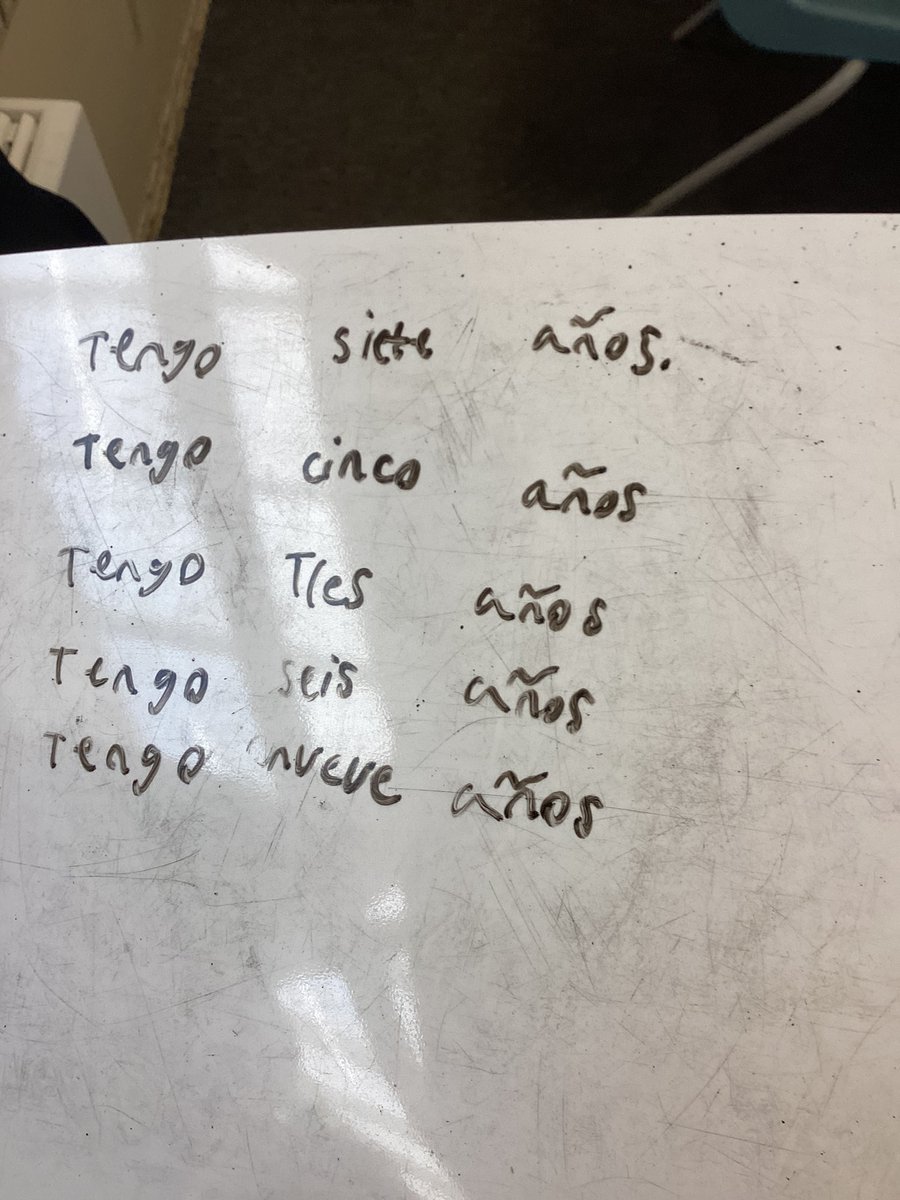 Tengo siete años.
Tengo cinco años
Tengo Tres años
Tengo seis años
Tengo nueve años